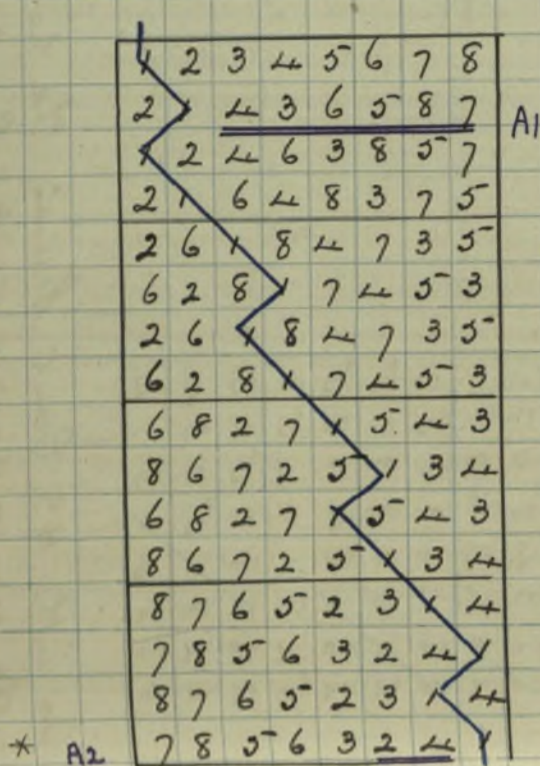 1 2 3 4 5 6 7 8
2 1 4 3 6 5 8 7 A1
1 2 4 6 3 8 5 7
2 1 6 4 8 3 7 5
2 6 1 8 4 7 3 5
6 2 8 1 7 4 5 3
2 6 1 8 4 7 3 5
6 2 8 1 7 4 5 3
6 8 2 7 1 5 4 3
8 6 7 2 5 1 3 4
6 8 2 7 1 5 4 3
8 6 7 2 5 1 3 4
8 7 6 5 2 3 1 4
7 8 5 6 3 2 4 1
8 7 6 5 2 3 1 4
* A2 7 8 5 6 3 2 4 1